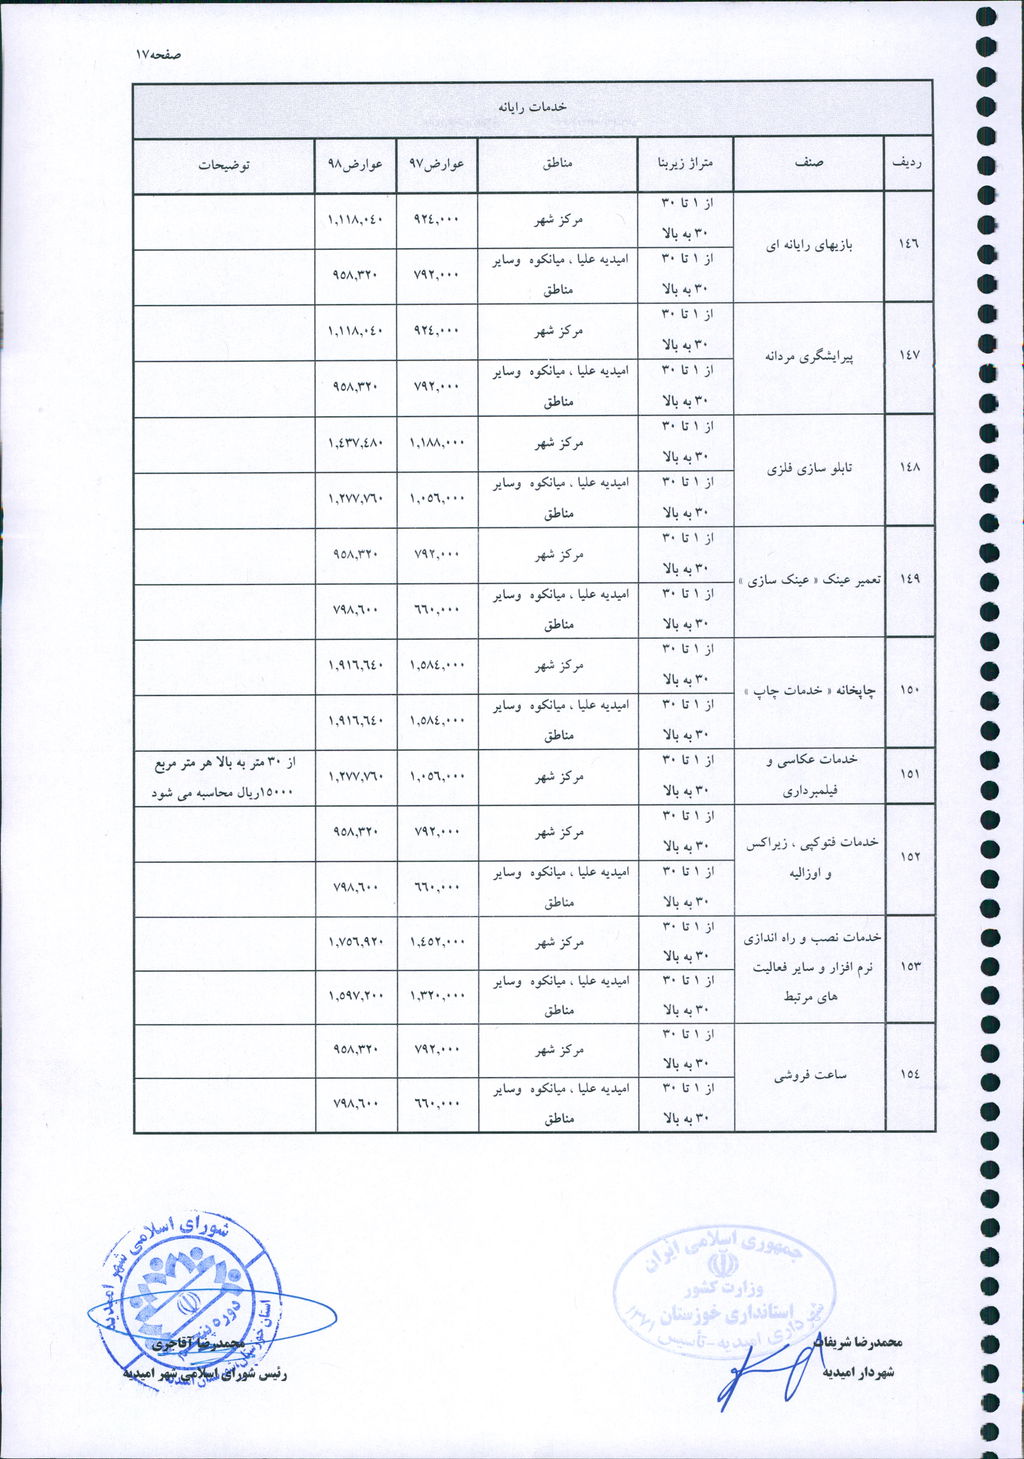 صفحه۱۷
خدمات رایانه
ردیف صنف متراژ زیربنا مناطق عوارض۹۷ عوارض۹۸ توضیحات
۱٤٦ بازیهای رایانه ای
از ۱ تا ۳۰
۳۰ به بالا
مرکز شهر ۹۲٤,۰۰۰ ۱,۱۱۸,۰٤۰
از ۱ تا ۳۰
۳۰ به بالا
امیدیه علیا ، میانکوه وسایر
مناطق
۷۹۲,۰۰۰ ۹۵۸,۳۲۰
۱٤۷ پیرایشگری مردانه
از ۱ تا ۳۰
۳۰ به بالا
مرکز شهر ۹۲٤,۰۰۰ ۱,۱۱۸,۰٤۰
از ۱ تا ۳۰
۳۰ به بالا
امیدیه علیا ، میانکوه وسایر
مناطق
۷۹۲,۰۰۰ ۹۵۸,۳۲۰
۱٤۸ تابلو سازی فلزی
از ۱ تا ۳۰
۳۰ به بالا
مرکز شهر ۱,۱۸۸,۰۰۰ ۱,٤۳۷,٤۸۰
از ۱ تا ۳۰
۳۰ به بالا
امیدیه علیا ، میانکوه وسایر
مناطق
۱,۰۵٦,۰۰۰ ۱,۲۷۷,۷٦۰
۱٤۹ تعمیر عینک « عینک سازی »
از ۱ تا ۳۰
۳۰ به بالا
مرکز شهر ۷۹۲,۰۰۰ ۹۵۸,۳۲۰
از ۱ تا ۳۰
۳۰ به بالا
امیدیه علیا ، میانکوه وسایر
مناطق
٦٦۰,۰۰۰ ۷۹۸,٦۰۰
۱۵۰ چاپخانه « خدمات چاپ »
از ۱ تا ۳۰
۳۰ به بالا
مرکز شهر ۱,۵۸٤,۰۰۰ ۱,۹۱٦,٦٤۰
از ۱ تا ۳۰
۳۰ به بالا
امیدیه علیا ، میانکوه وسایر
مناطق
۱,۵۸٤,۰۰۰ ۱,۹۱٦,٦٤۰
۱۵۱ خدمات عکاسی و
فیلمبرداری
از ۱ تا ۳۰
۳۰ به بالا
مرکز شهر ۱,۰۵٦,۰۰۰ ۱,۲۷۷,۷٦۰
از ۳۰ متر به بالا هر متر مربع
۱۵۰۰۰ریال محاسبه می شود
۱۵۲ خدمات فتوکپی ، زیراکس
و اوزالیه
از ۱ تا ۳۰
۳۰ به بالا
مرکز شهر ۷۹۲,۰۰۰ ۹۵۸,۳۲۰
از ۱ تا ۳۰
۳۰ به بالا
امیدیه علیا ، میانکوه وسایر
مناطق
٦٦۰,۰۰۰ ۷۹۸,٦۰۰
۱۵۳ خدمات نصب و راه اندازی
نرم افزار و سایر فعالیت
های مرتبط
از ۱ تا ۳۰
۳۰ به بالا
مرکز شهر ۱,٤۵۲,۰۰۰ ۱,۷۵٦,۹۲۰
از ۱ تا ۳۰
۳۰ به بالا
امیدیه علیا ، میانکوه وسایر
مناطق
۱,۳۲۰,۰۰۰ ۱,۵۹۷,۲۰۰
۱۵٤ ساعت فروشی
از ۱ تا ۳۰
۳۰ به بالا
مرکز شهر ۷۹۲,۰۰۰ ۹۵۸,۳۲۰
از ۱ تا ۳۰
۳۰ به بالا
امیدیه علیا ، میانکوه وسایر
مناطق
٦٦۰,۰۰۰ ۷۹۸,٦۰۰
جمهوری اسلامی ایران
وزارت کشور
استانداری خوزستان
شهرداری امیدیه-تأسیس ۱۳۷۱
محمدرضا شریفات
شهردار امیدیه
شورای اسلامی شهر امیدیه
محمدرضا آقاجری
رئیس شورای اسلامی شهر امیدیه